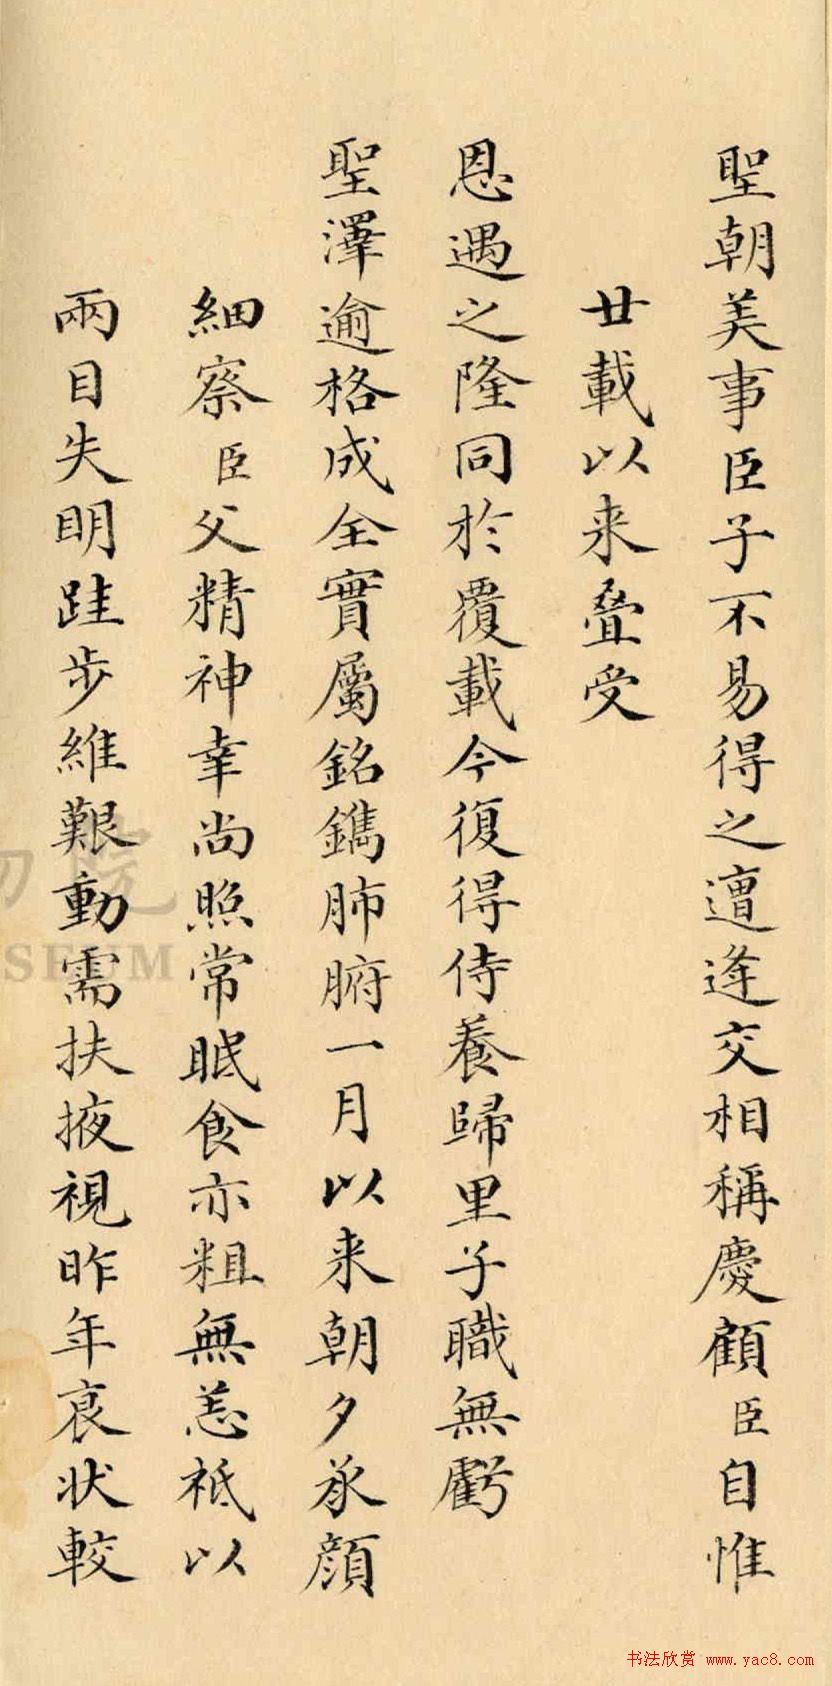 聖朝美事臣子不易得之遭逢交相稱慶顧臣自惟
廿載以来疊受
恩遇之隆同於覆載今復得侍養歸里子職無虧
聖澤逾格成全實屬銘鐫肺腑一月以来朝夕承顔
細察臣父精神幸尚照常眠食亦粗無恙祇以
兩目失明跬步維艱動需扶掖視昨年衰状較
院
SEUM
书法欣赏 www.yac8.com